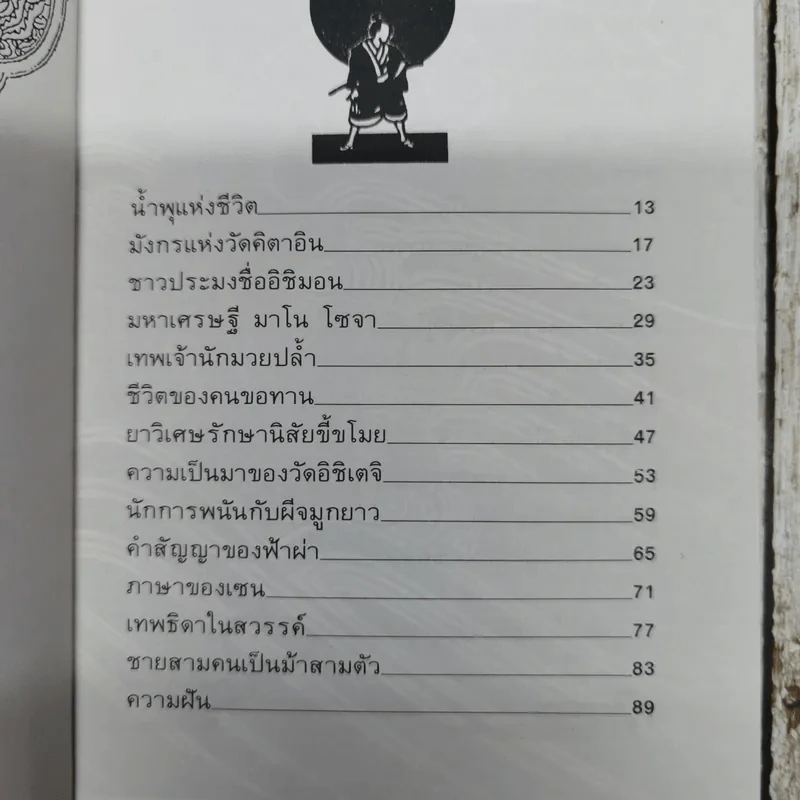 น้ำพุแห่งชีวิต 13
มังกรแห่งวัดคิตาอิน 17
ชาวประมงชื่ออิชิมอน 23
มหาเศรษฐี มาโน โซจา 29
เทพเจ้านักมวยปล้ำ 35
ชีวิตของคนขอทาน 41
ยาวิเศษรักษานิสัยขี้ขโมย 47
ความเป็นมาของวัดอิชิเตจิ 53
นักการพนันกับผีจมูกยาว 59
คำสัญญาของฟ้าผ่า 65
ภาษาของเซน 71
เทพธิดาในสวรรค์ 77
ชายสามคนเป็นม้าสามตัว 83
ความฝัน 89